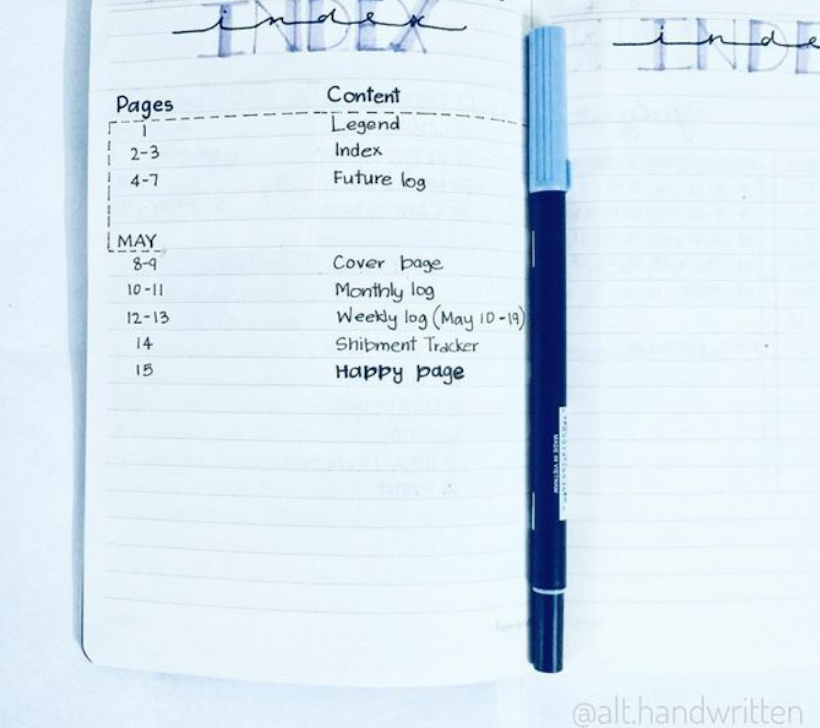 INDEX
index
INDE
inde
Pages Content
1 Legend
2-3 Index
4-7 Future log
MAY
8-9 Cover page
10-11 Monthly log
12-13 Weekly log (May 10-19)
14 Shibment Tracker
15 Happy page
MADE IN VIETNAM
@alt.handwritten